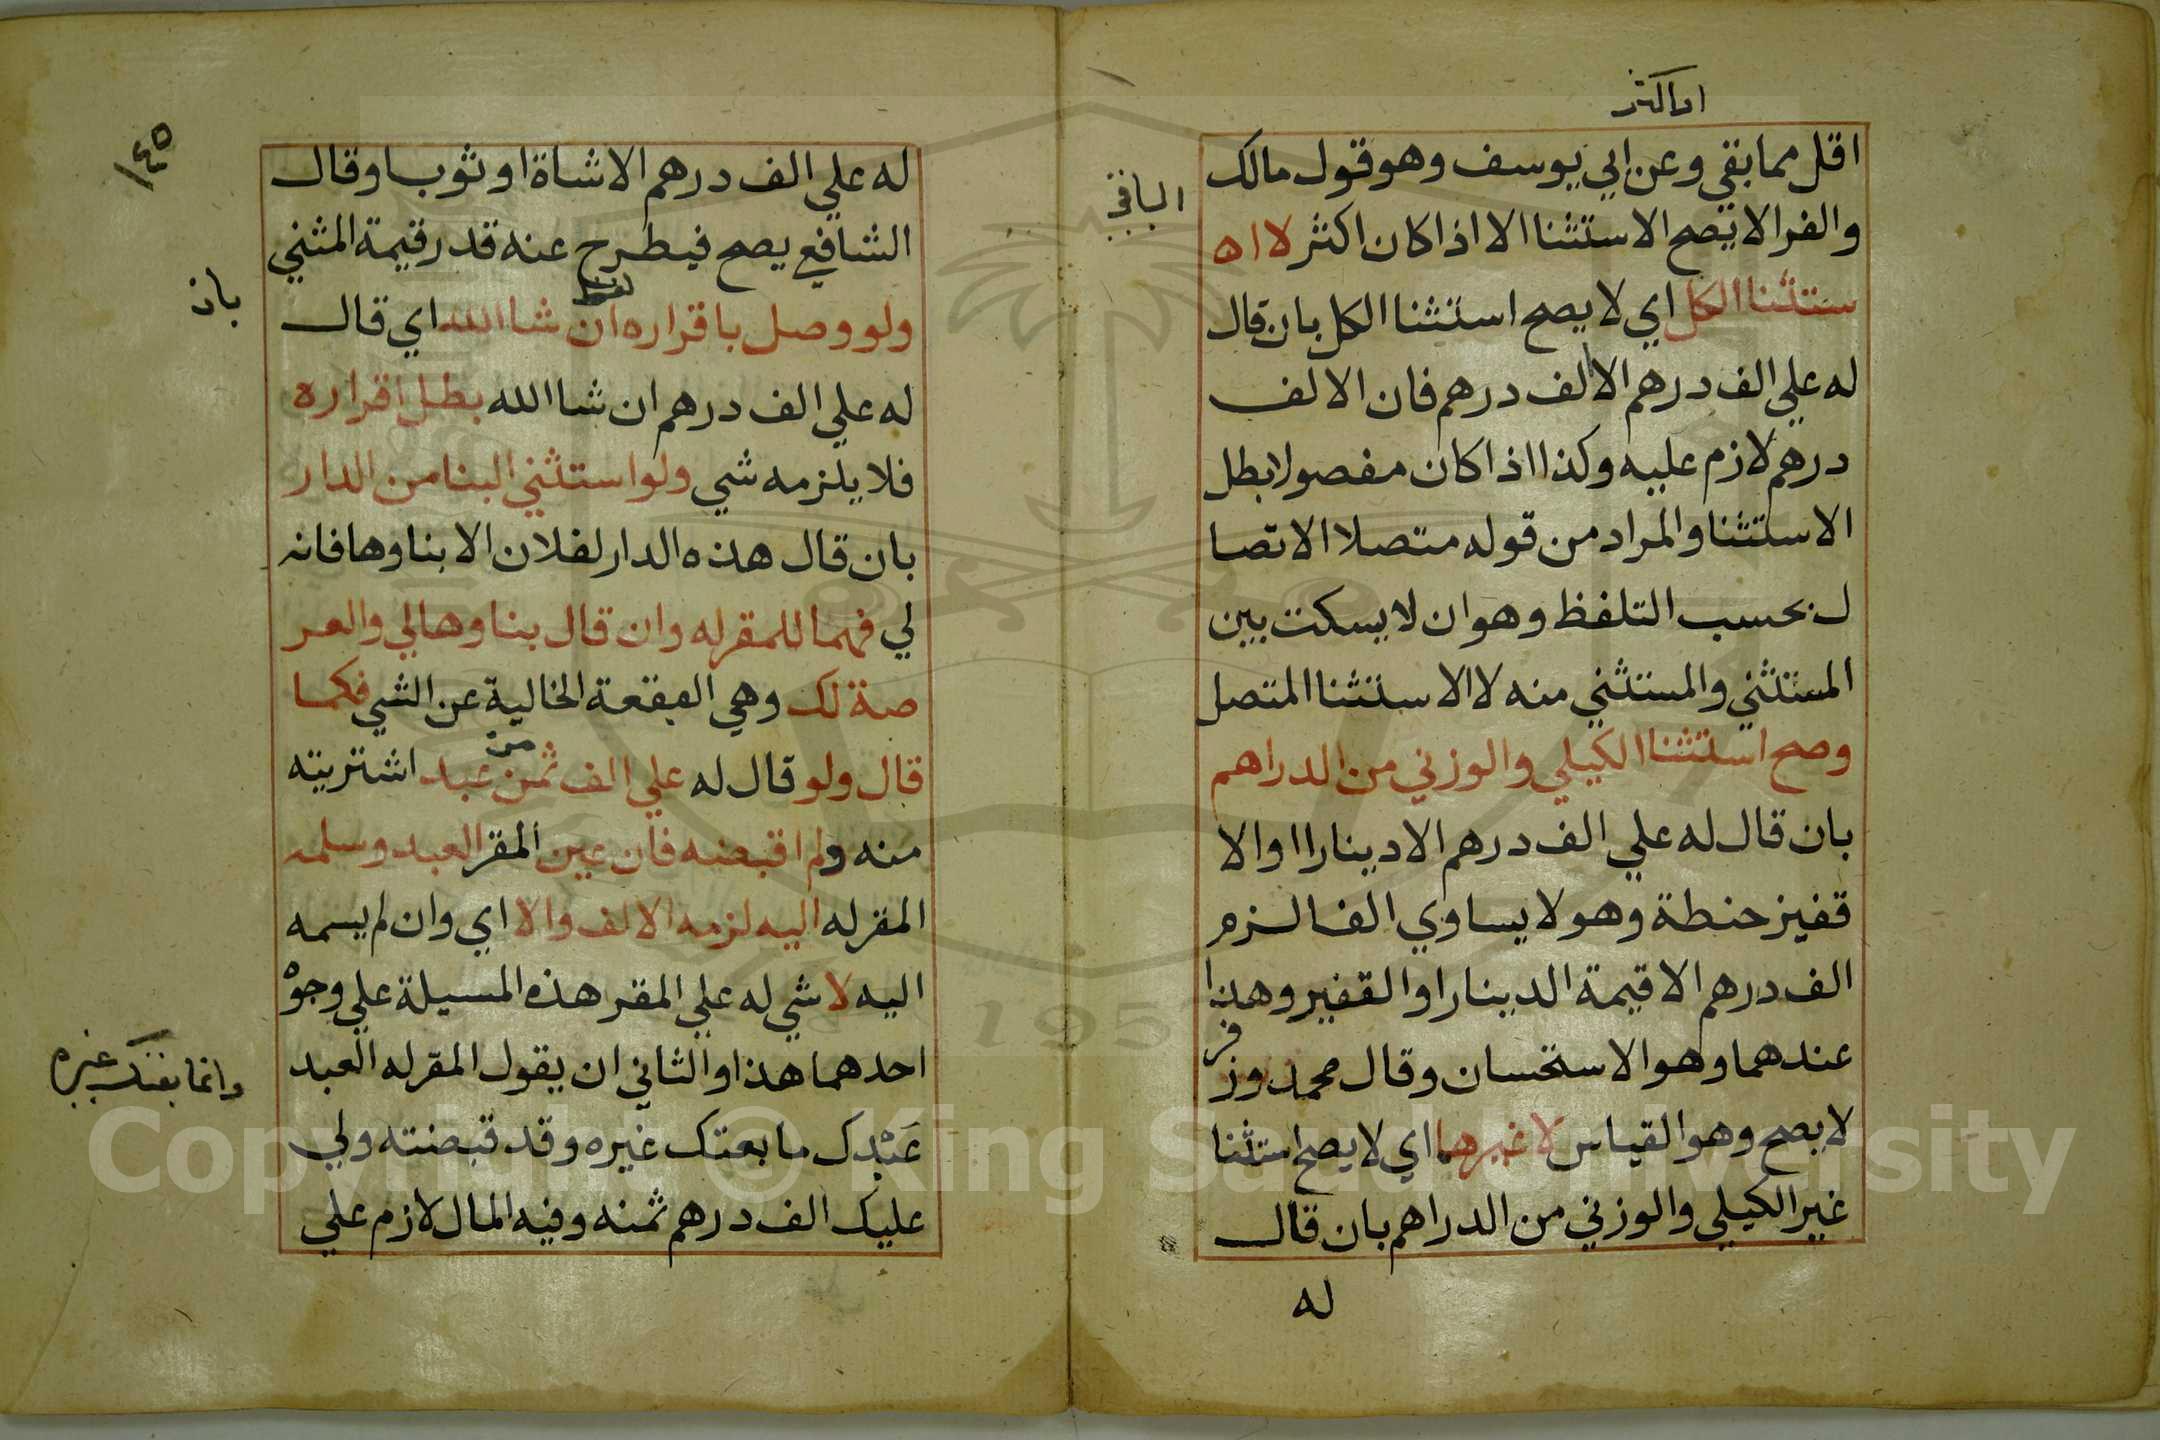 او اكثر
اقل مما بقي وعن ابي يوسف وهو قول مالك
والفرا لا يصح الاستثنا الا اذا كان اكثر لا ا
الباقي
ستثنا الكل اي لا يصح استثنا الكل بان قال
له علي الف درهم الا الف درهم فان الالف
درهم لازم عليه وكذا اذا كان مفصولا بطل
الاستثنا والمراد من قوله متصلا الاتصا
ل بحسب التلفظ وهو ان لا يسكت بين
المستثني والمستثني منه لا الاستثنا المتصل
وصح استثنا الكيلي والوزني من الدراهم
بان قال له علي الف درهم الا دينارا او الا
قفيز حنطة وهو لا يساوي الفا لزم
الف درهم الا قيمة الدينار او القفيز وهذا
عندهما وهو الاستحسان وقال محمد وز
فر
لا يصح وهو القياس لا غيرها اي لا يصح استثنا
غير الكيلي والوزني من الدراهم بان قال
له
١٤٥
له علي الف درهم الا شاة او ثوبا وقال
الشافعي يصح فيطرح عنه قدر قيمة المثني
ولو وصل باقراره ان شا الله اي قال
بان
له علي الف درهم ان شا الله بطل اقراره
فلا يلزمه شي ولو استثني البنا من الدار
بان قال هذه الدار لفلان الا بناوها فانه
لي فهما للمقرله وان قال بناوها لي والعر
صة لك وهي البقعة الخالية عن الشي فكما
قال ولو قال له علي الف ثمن عبد اشتريته
من
منه ولم اقبضه فان عين المقر العبد وسلمه
المقرله اليه لزمه الالف والا اي وان لم يسمه
اليه لا شي له علي المقر هذه المسيلة علي وجوه
احدهما هذا والثاني ان يقول المقرله العبد
عَبْدك ما بعتك غيره وقد قبضته ولي
وانما بعتك غيره
عليك الف درهم ثمنه وفيه المال لازم علي
Copyright © King Saud University
1957